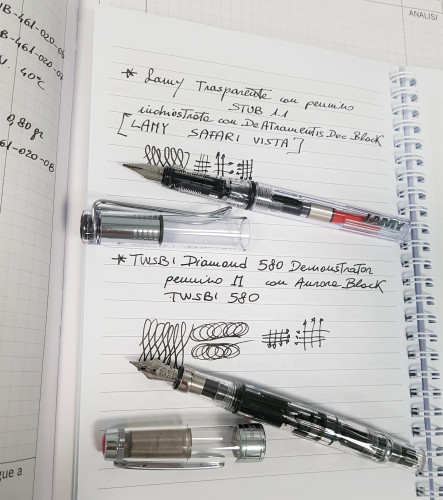 ANALISI
B-461-020-0
B-461-020-0
40°C
0,80 gr
461-020-0B
* Lamy Trasparente con pennino
STUB 1.1
inchiostrata con De Atramentis Doc Black
[LAMY SAFARI VISTA]
LAMY
* TWSBI Diamond 580 Demonstrator
pennino M con Aurora Black
TWSBI 580
gue a